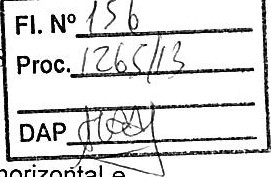 Fl. Nº 156
Proc. 1265/13
DAP
horizontal e